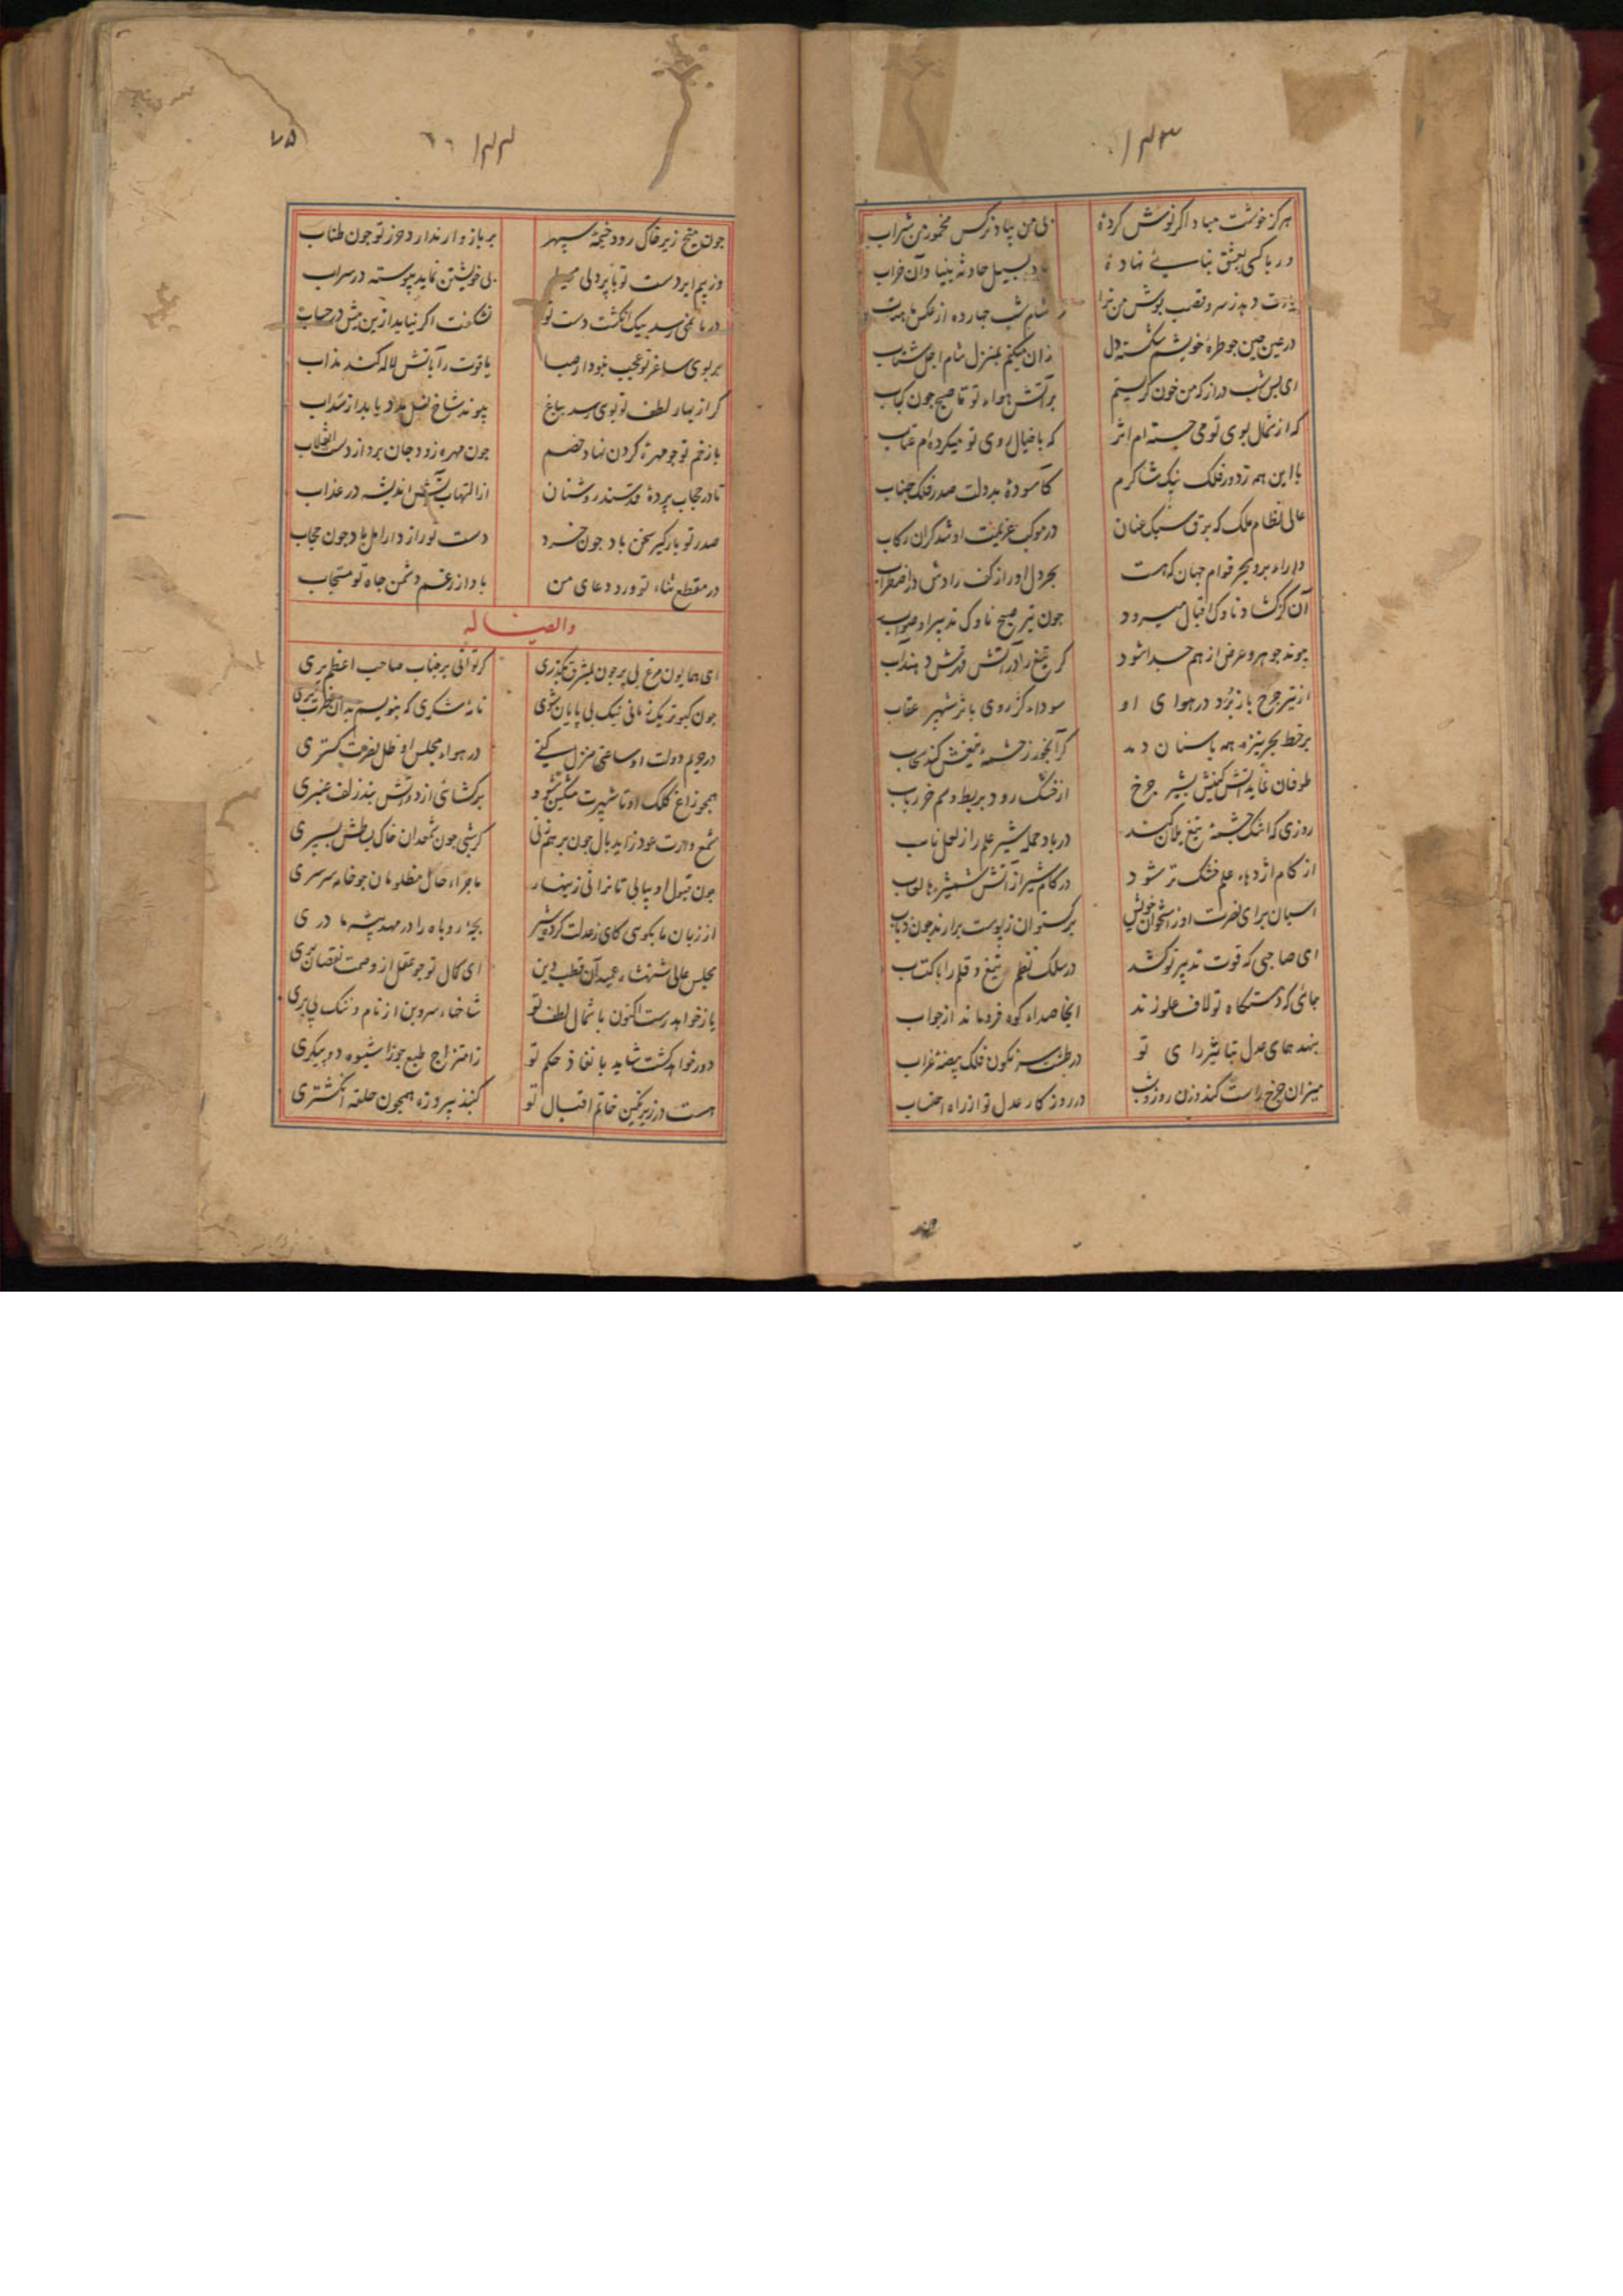 ۱۴۳
هرگز خوشت مباد اگر نوش کردهٔ
بی من بیاد نرکس مخمور من شراب
ور با کسی بعشق بنایی نهادهٔ
بادا بسیل حادثه بنیاد آن خراب
شام شب چهارده از عکس ماهتاب
در عین چین جو طرهٔ خویشم شکسته دل
زان میکنم بمنزل شام اجل شتاب
ای بس شب دراز که من خون کریستم
بر آتش هواء تو تا صبح جون کباب
که از شمال بوی تو می جسته ام اثر
که با خیال روی تو میکرده ام عتاب
با این همه ز دور فلک نیک شاکرم
کاسودهٔ بدولت صدر فلک جناب
عالی نظام ملک که برق سبک عنان
در موکب عزیمت او شد کران رکاب
داراء بر و بحر قوام جهان که هست
بحر دل اور از کف رادش در اضطراب
آن کز کشاد ناوک اقبال میرود
جون تیر صبح ناوک تدبیر او صواب
پیوند جوهر و عرض از هم جدا شود
کر تیغ را در آتش قهرش دهند آب
از تیر جرخ باز برد در هوای او
سوداء کژ روی با ثر شهپر عقاب
بر خط بحر نیزه همه یاسنان دمد
کر آبخور ز چشمهٔ تیغش کند سحاب
طوفان نماید آتش کینش بشیر جرخ
از خشک رود بربط و سم خر رباب
روزی که اشک چشمهٔ تیغ بلان کند
در باد حمله شیر علم را ز لعل ناب
از کام اژدهاء علم خشک تر شود
در کام شیر از آتش شمشیرها لعاب
اسبان برای نصرت او ز استخوان خویش
برکستوان ز پوست برارند جون دواب
ای صاحبی که قوت تدبیر تو کشد
در سلک نظم تیغ و قلم را با کتاب
جائی که دستکاه تو لاف علو زند
آنجا صداء کوه فرو ماند از جواب
بنهد همای عدل بتاثیر رای تو
در طشت سرنکون فلک بیضهٔ غراب
میزان جرخ راست کند وزن روز و شب
در روزکار عدل تو از راه احتساب
۱۴۴
۷۵
جون میخ زیر خاک رود خیمهٔ سپهر
بر باز و ار ندارد حرز تو جون طناب
وز بیم ابر دست تو با پر دلی محیط
بی خویشتن نماید پیوسته در سراب
دریا نمی رسد بیک انکشت دست تو
نشکفت اکر نیاید ازین بیش در حساب
بر بوی ساغر تو عجب نبود ار صبا
یاقوت را بآتش لاله کند مذاب
کر از بهار لطف تو بوی رسد بباغ
پیوند شاخ نسل مدد یابد از سداب
با زخم تو جو مهرهٔ کردن نهاد خصم
جون مهره زو جان برد از دست انقلاب
تا در حجاب پردهٔ قدسند روشنان
از التهاب آتش اندیشه در عذاب
صدر تو بارکیر سخن باد جون خرد
دست تو راز دار امل باد جون حجاب
در مقطع ثناء تو ورد دعای من
باد از رغم دشمن جاه تو مستجاب
و ایضا له
ای همایون مرغ بی پر جون بمشرق بکذری
کر توانی بر جناب صاحب اعظم پری
جون کبوتر یک زمانی نیک بی پایان شوی
نامهٔ شکری که بنویسم بدان حضرت بری
در حریم دولت او ساعتی منزل کنی
در هواء مجلس او ظل نصرت کستری
همچو زاغ کلک او تا شهپرت مشکین شود
برکشائی از دواتش بند زلف عنبری
شمع وارت عود زاید بال جون بر هم زنی
کر شبی جون شمعدان خاک بساطش بسپری
جون قبول او بیابی تا نرانی زینهار
ماجراء حال مظلومان جو خامه سرسری
از زبان ما بکوسی کای ز عدلت کرده شیر
بچهٔ روباه را در مهد بیشه مادری
مجلس عالی شهنشاء عمید آن قطب دین
ای کمال تو جو عقل از وصمت نقصان بری
باز خواهد رست اکنون با شمال لطف تو
شاخهاء سرو بن از نام و ننک بی بری
دور خواهد کشت شاید با نفاذ حکم تو
ز امتزاج طبع جوزا شیوهٔ دو پیکری
هست در زیر نکین خاتم اقبال تو
کنبذ پیروزه همچون حلقه انکشتری